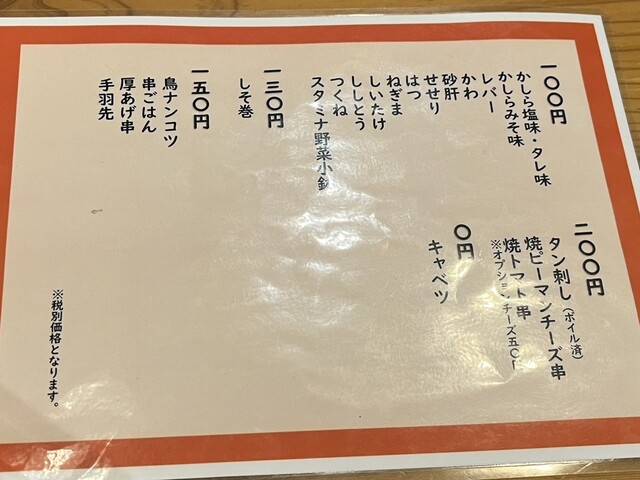 一〇〇円
かしら塩味・タレ味
かしらみそ味
レバー
かわ
砂肝
せせり
はつ
ねぎま
しいたけ
ししとう
つくね
スタミナ野菜小鉢
一三〇円
しそ巻
一五〇円
鳥ナンコツ
串ごはん
厚あげ串
手羽先
二〇〇円
タン刺し(ボイル済)
焼ピーマンチーズ串
焼トマト串
※オプションチーズ五〇円
〇円
キャベツ
※税別価格となります。